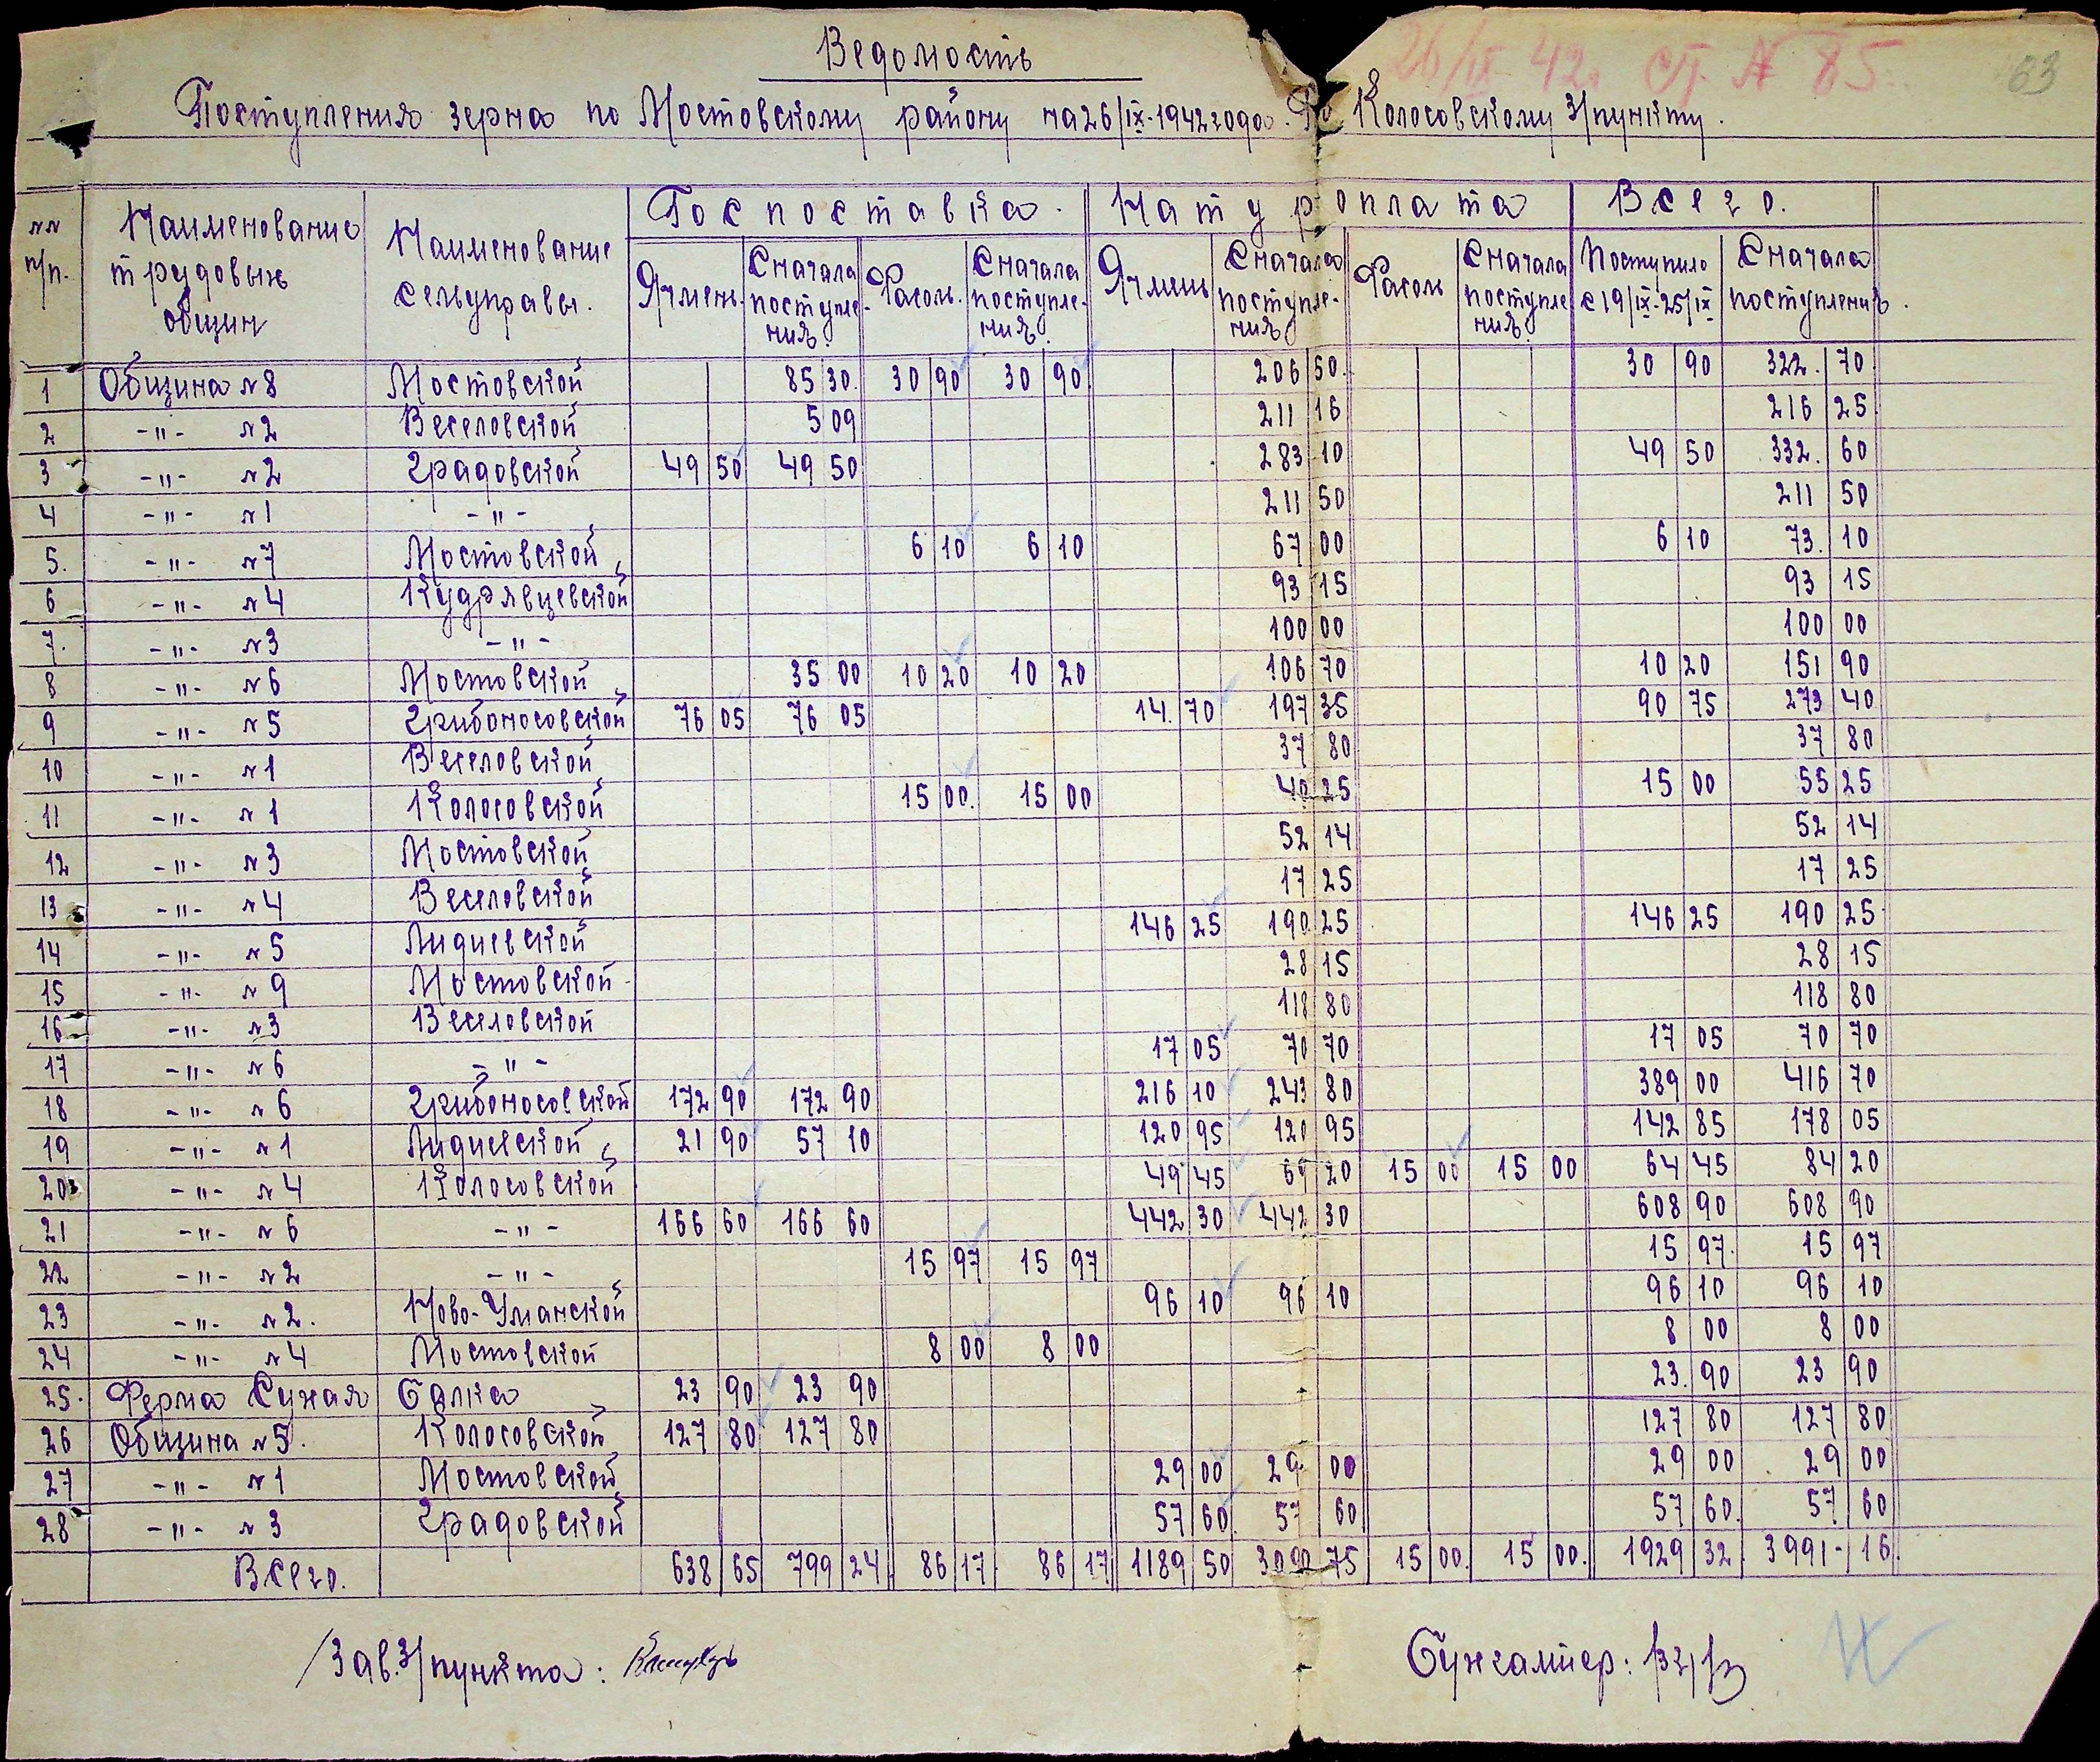 Ведомость
26/IX 42. СП. № 85.
63
Поступления зерна по Мостовскому району на 26/IX-1942 года. По Колосовскому З/пункту.
№№ п/п.
Наименование трудовых общин
Наименование сельуправы.
Госпоставка.
Натуроплата
Всего.
Ячмень. Сначала поступления. Фасоль. Сначала поступления. Ячмень Сначала поступления Фасоль Сначала поступления. Поступило с 19/IX-25/IX Сначала поступления.
1 Община №8 Мостовской 85 30. 30 90 30 90 206 50. 30 90 322. 70
2 -"- №2 Веселовской 5 09 211 16 216 25
3 -"- №2 Градовской 49 50 49 50 283 10 49 50 332. 60
4 -"- №1 -"- 211 50 211 50
5. -"- №7 Мостовской 6 10 6 10 67 00 6 10 73. 10
6 -"- №4 Кудрявцевской 93 15 93 15
7. -"- №3 -"- 100 00 100 00
8 -"- №6 Мостовской 35 00 10 20 10 20 106 70 10 20 151 90
9 -"- №5 Грибоносовской 76 05 76 05 14. 70 197 35 90 75 273 40
10 -"- №1 Веселовской 37 80 37 80
11 -"- №1 Колосовской 15 00. 15 00 40 25 15 00 55 25
12 -"- №3 Мостовской 52 14 52 14
13 -"- №4 Веселовской 17 25 17 25
14 -"- №5 Лидиевской 146 25 190 25 146 25 190 25
15 -"- №9 Мостовской 28 15 28 15
16 -"- №3 Веселовской 118 80 118 80
17 -"- №6 -"- 17 05 70 70 17 05 70 70
18 -"- №6 Грибоносовской 172 90 172 90 216 10 243 80 389 00 416 70
19 -"- №1 Лидиевской 21 90 57 10 120 95 120 95 142 85 178 05
20 -"- №4 Колосовской 49 45 69 20 15 00 15 00 64 45 84 20
21 -"- №6 -"- 166 60 166 60 442 30 442 30 608 90 608 90
22 -"- №2 -"- 15 97 15 97 15 97. 15 97
23 -"- №2. Ново-Уманской 96 10 96 10 96 10 96 10
24 -"- №4 Мостовской 8 00 8 00 8 00 8 00
25. Ферма Сухая Балка 23 90 23 90 23. 90 23 90
26 Община №5. Колосовской 127 80 127 80 127 80 127 80
27 -"- №1 Мостовской 29 00 29 00 29 00 29 00
28 -"- №3 Градовской 57 60. 57 60 57 60. 57 60
Всего. 638 65 799 24 86 17 86 17 1189 50 3090 75 15 00. 15 00. 1929 32. 3991- 16.
/Зав.З/пункта:
Бухгалтер: